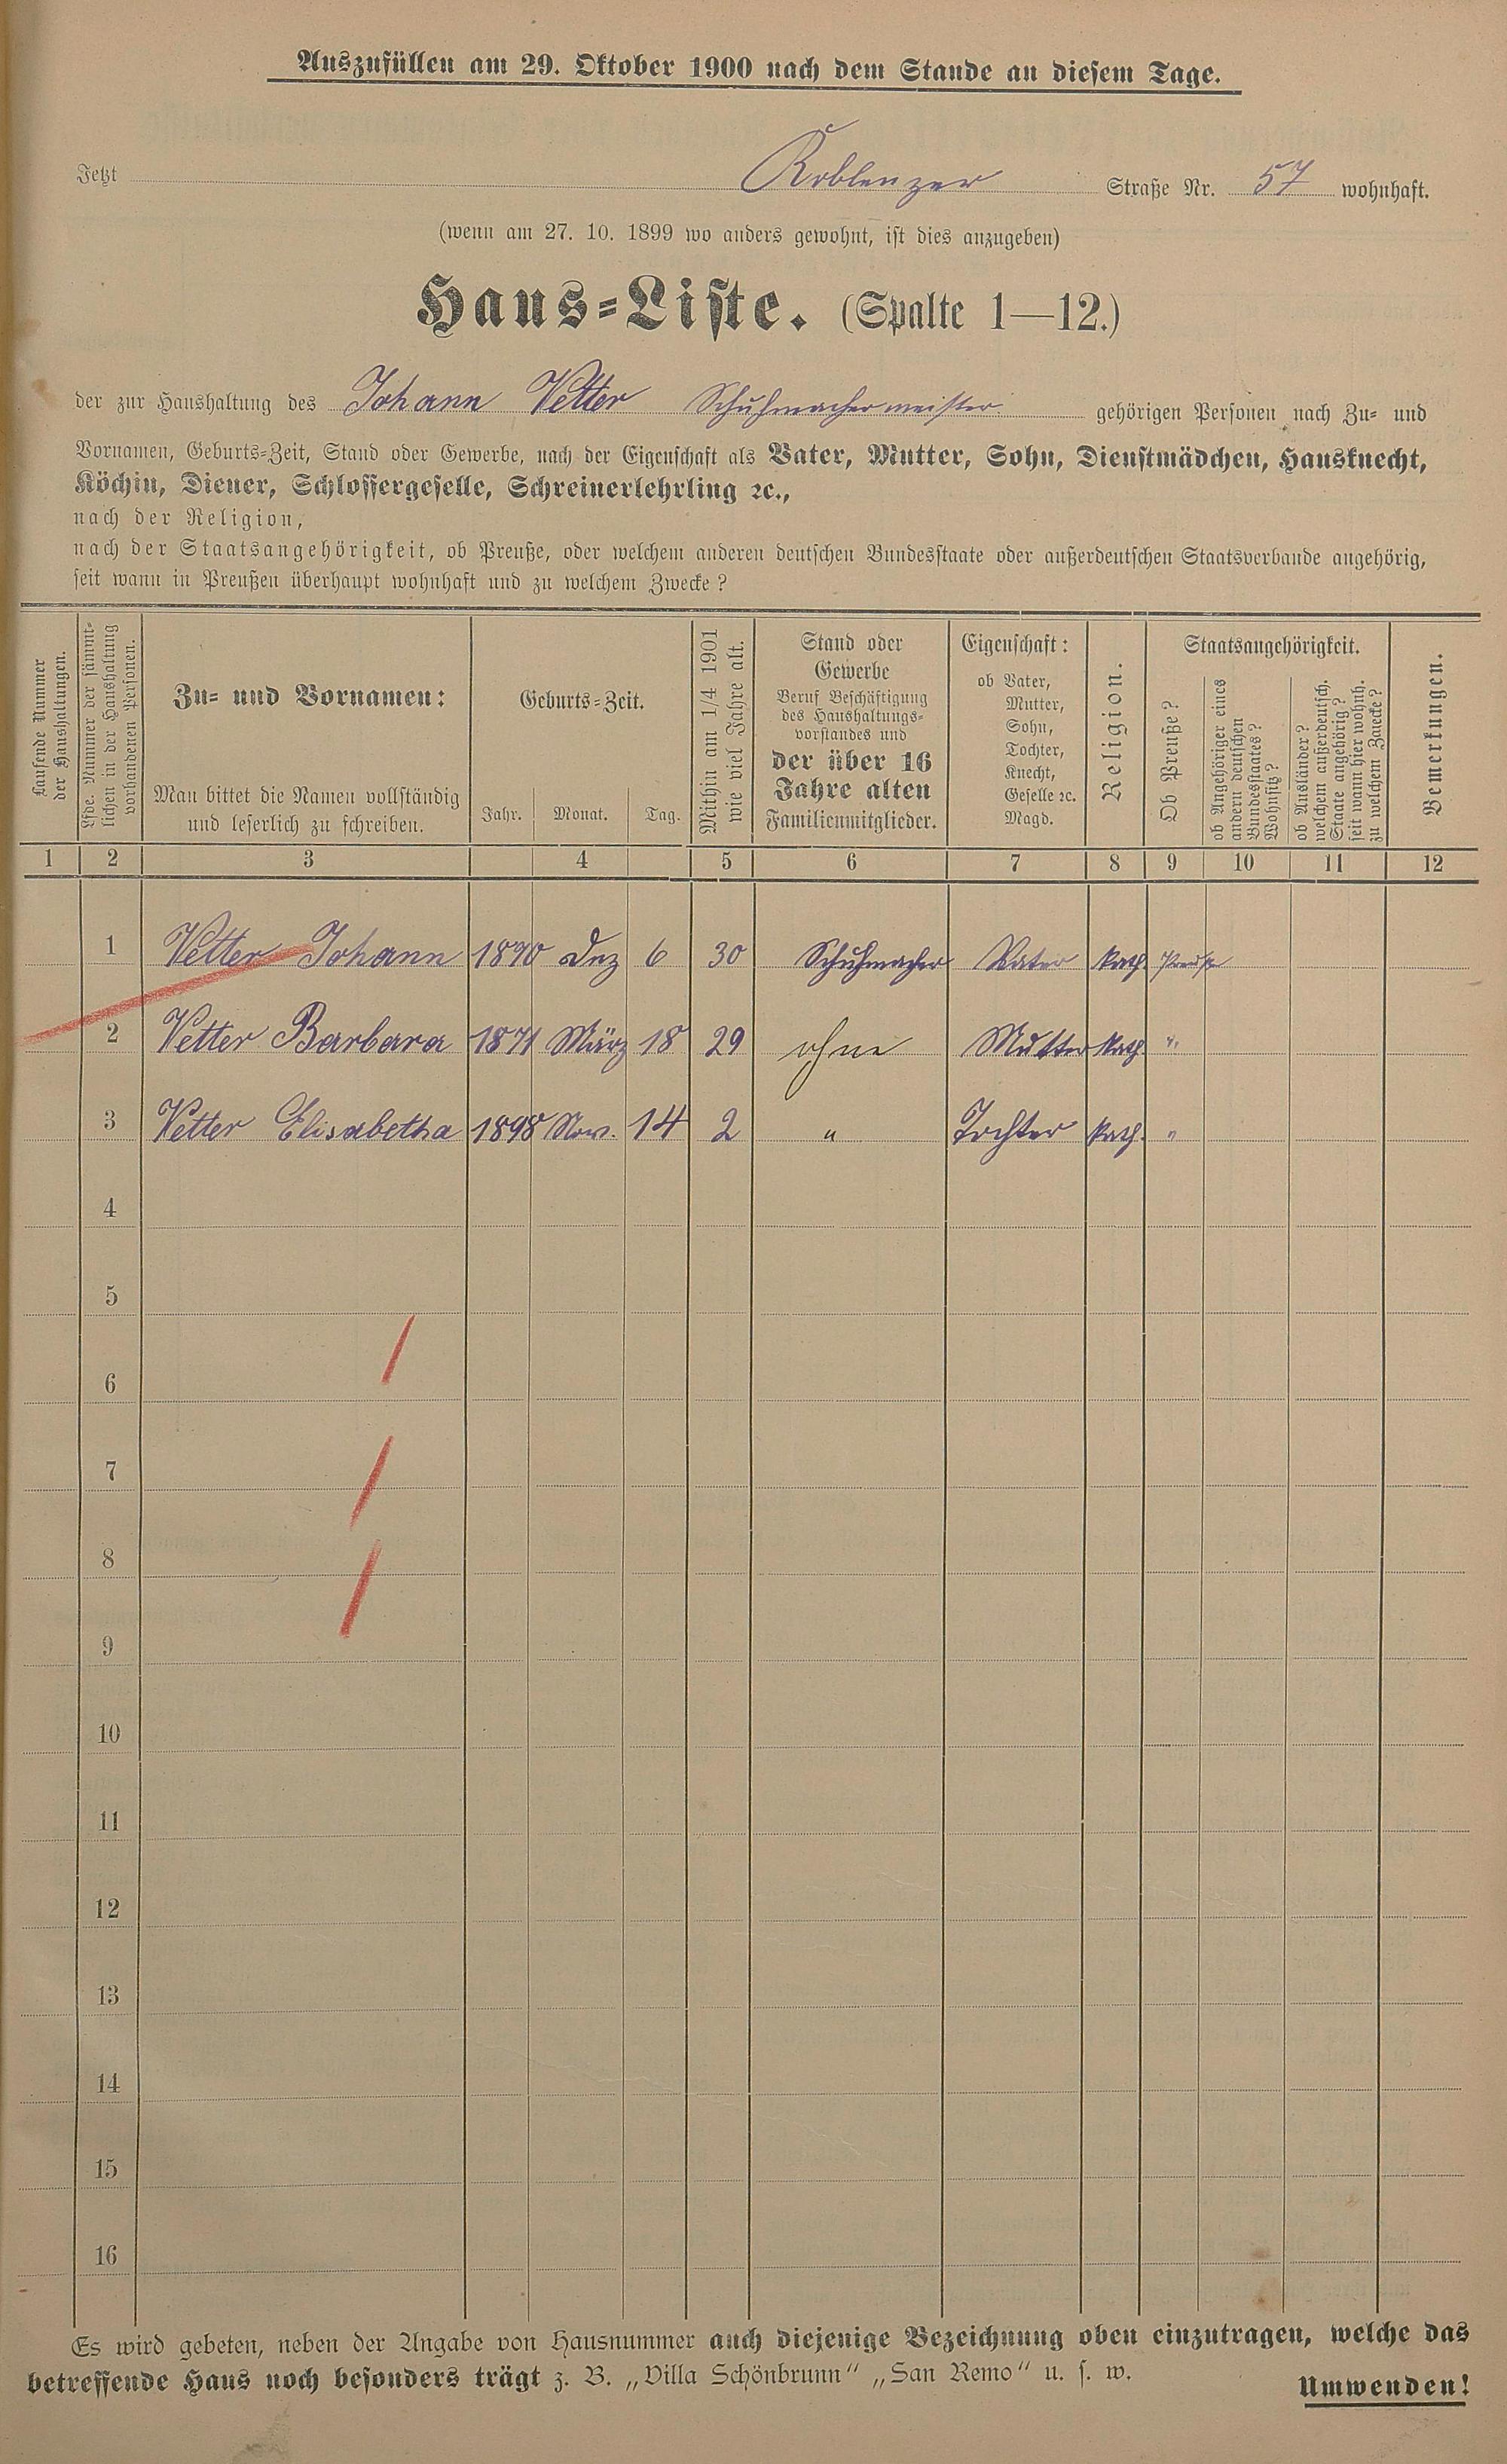 Auszufüllen am 29. Oktober 1900 nach dem Stande an diesem Tage.
Jetzt Koblenzer Straße Nr. 57 wohnhaft.
(wenn am 27. 10. 1899 wo anders gewohnt, ist dies anzugeben)
Haus-Liste. (Spalte 1—12.)
der zur Haushaltung des Johann Vetter Schuhmachermeister gehörigen Personen nach Zu- und
Vornamen, Geburts-Zeit, Stand oder Gewerbe, nach der Eigenschaft als Vater, Mutter, Sohn, Dienstmädchen, Hausknecht,
Köchin, Diener, Schlossergeselle, Schreinerlehrling ꝛc.,
nach der Religion,
nach der Staatsangehörigkeit, ob Preuße, oder welchem anderen deutschen Bundesstaate oder außerdeutschen Staatsverbande angehörig,
seit wann in Preußen überhaupt wohnhaft und zu welchem Zwecke?
Laufende Nummer
der Haushaltungen.
Lfde. Nummer der sämmt-
lichen in der Haushaltung
vorhandenen Personen.
Zu- und Vornamen:
Man bittet die Namen vollständig
und leserlich zu schreiben.
Geburts-Zeit.
Jahr. Monat. Tag.
Mithin am 1/4 1901
wie viel Jahre alt.
Stand oder
Gewerbe
Beruf Beschäftigung
des Haushaltungs-
vorstandes und
der über 16
Jahre alten
Familienmitglieder.
Eigenschaft:
ob Vater,
Mutter,
Sohn,
Tochter,
Knecht,
Geselle ꝛc.
Magd.
Religion.
Staatsangehörigkeit.
Ob Preuße?
ob Angehöriger eines
andern deutschen
Bundesstaates?
Wohnsitz?
ob Ausländer?
welchem außerdeutsch.
Staate angehörig?
seit wann hier wohnh.
zu welchem Zwecke?
Bemerkungen.
1 2 3 4 5 6 7 8 9 10 11 12
1 Vetter Johann 1870 Dez 6 30 Schuhmacher Vater kath. Preuße
2 Vetter Barbara 1871 März 18 29 ohne Mutter kath. "
3 Vetter Elisabetha 1898 Nov. 14 2 " Tochter kath. "
4
5
6
7
8
9
10
11
12
13
14
15
16
Es wird gebeten, neben der Angabe von Hausnummer auch diejenige Bezeichnung oben einzutragen, welche das
betreffende Haus noch besonders trägt z. B. „Villa Schönbrunn“ „San Remo“ u. s. w.
Umwenden!